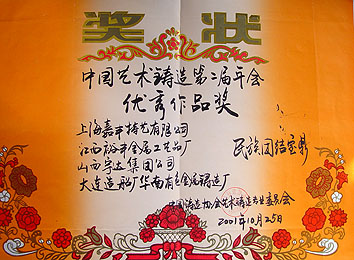 奖状
中国艺术铸造第二届年会
优秀作品奖
上海嘉平铸艺有限公司
江西裕丰金属工艺品厂
民族团结宝鼎
山西宇达集团公司
大连造船厂华南有色金属铸造厂
中国铸造协会艺术铸造专业委员会
2001年10月25日